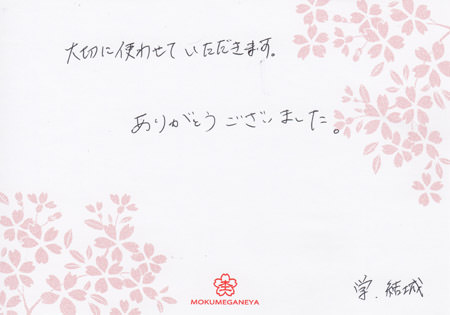 大切に使わせていただきます。
ありがとうございました。
杢
MOKUMEGANEYA
学.結城